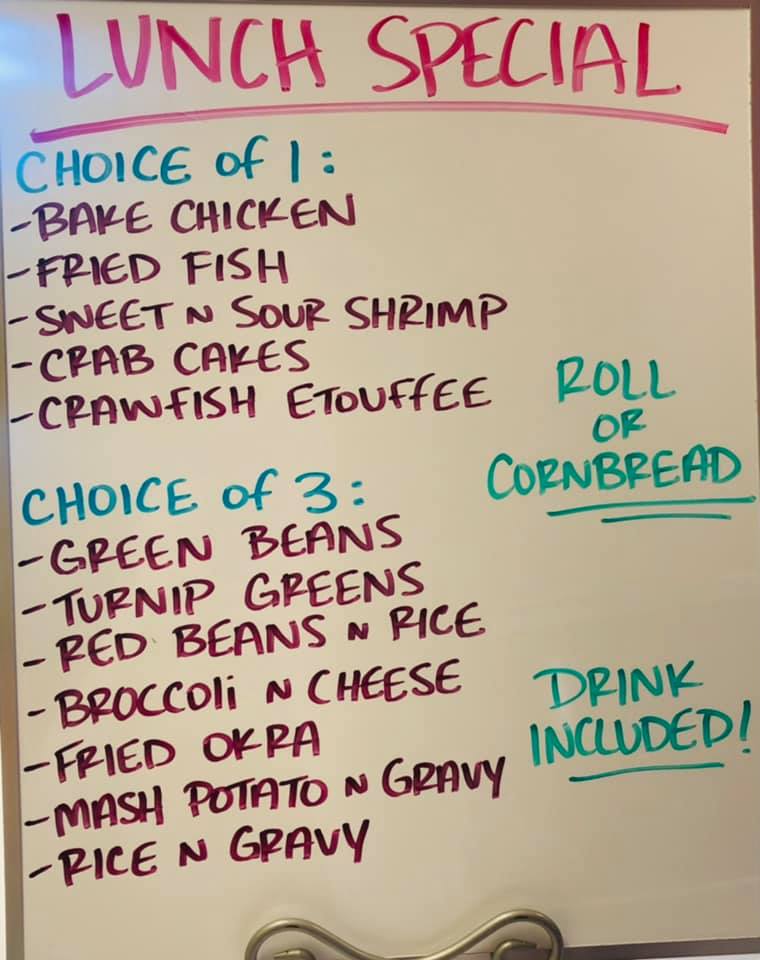 LUNCH SPECIAL
CHOICE of 1:
-BAKE CHICKEN
-FRIED FISH
-SWEET N SOUR SHRIMP
-CRAB CAKES
-CRAWfISH ETOUffEE
ROLL
OR
CORNBREAD
CHOICE of 3:
-GREEN BEANS
-TURNIP GREENS
-RED BEANS N RICE
-BROCCOLi N CHEESE
-FRIED OKRA
-MASH POTATO N GRAVY
-RICE N GRAVY
DRINK
INCLUDED!